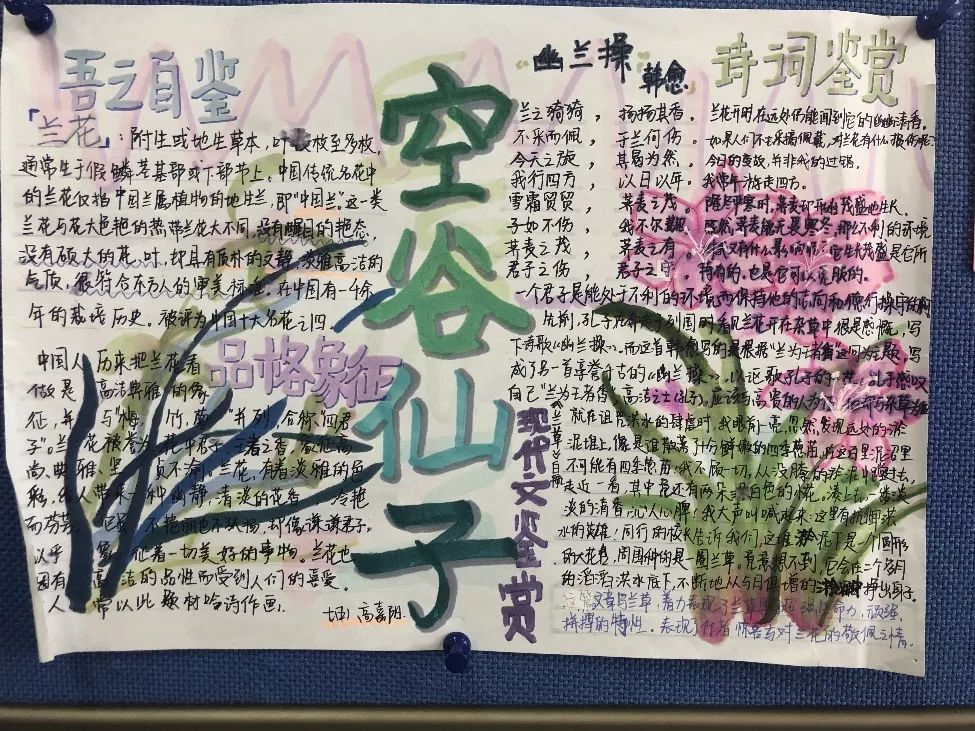 吾之自鉴
「兰花」：附生或地生草本，叶数枚至多枚，
通常生于假鳞茎基部或下部节上。中国传统名花中
的兰花仅指中国兰属植物的地生兰，即"中国兰"。这一类
兰花与花大色艳的热带兰花大不同，没有醒目的艳态，
没有硕大的花、叶，却具有质朴的文静、淡雅高洁的
气质，很符合东方人的审美标准。在中国有一千余
年的栽培历史。被评为中国十大名花之四。
品格象征
中国人历来把兰花看
做是高洁典雅的象
征，并与"梅、竹、菊"并列，合称"四君
子"。兰花被誉为花中君子、王者之香，象征高
尚、典雅、坚贞不渝。兰花，有着淡雅的色
彩，给人带来一种幽静、清淡的花香，冷艳
而芬芳。不艳丽也不张扬，却像谦谦君子，
以乎象征着一切美好的事物。兰花也
因有高洁的品性而受到人们的喜爱，
人常以此题材吟诗作画。
高嘉
空谷仙子
"幽兰操" 韩愈
兰之猗猗，扬扬其香。
不采而佩，于兰何伤。
今天之旋，其曷为然。
我行四方，以日以年。
雪霜贸贸，荠麦之茂。
子如不伤，我不尔觏。
荠麦之茂，荠麦之有。
君子之伤，君子之守。
诗词鉴赏
兰花开时，在远处仍能闻到它的幽幽清香。
如果人们不去采摘佩戴，对兰花有什么损伤呢？
今日的变故，并非我的过错。
我常年游走四方。
隆冬严寒时，荠麦却开始茂盛地生长。
既然荠麦能无畏寒冬，那么不利的环境
对我又有什么影响呢？它生机茂盛是它所
特有的，也是它可以克服的。
一个君子是能处于不利的环境而保持他的志向和德行操守的啊
先前，孔子在奔走列国时看见兰花开在杂草中很是感慨，写
下诗歌《幽兰操》。而这首韩愈写的是根据"兰为王者香"这句为主题，写
成了另一首享誉千古的《幽兰操》。以讴歌孔子的一生。孔子感叹
自己"兰为王者香，高洁之士（孔子），应该与高贵的人为伍，
现代文鉴赏
就在诅咒洪水的肆虐时，我眼前一亮，忽然，发现远处的淤
泥堆上，像是谁散落了十分鲜嫩的四季葱苗，而这白里泥里
不可能有四季葱苗，我不顾一切，从没膝的淤泥中蹚过去，
走近一看，其中竟还有两朵白色的小花。凑上去，一缕淡
淡的清香，沁人心脾！我大声叫喊起来：这里有抗御洪
水的英雄！同行的校长告诉我们，这堆淤泥下是一个圆形
的大花台，周围种的是一圈兰草。竟意想不到，它会在一个多月
的滔滔洪水底下，不断地从与日俱增的淤泥中挣出身子。
这篇文章写兰草，着力表现了兰草顽强的生命力，顽强
拼搏的特性。表现了作者怀苦与对兰花的敬佩之情。